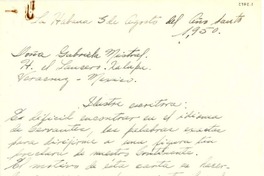 La Habana 5 de agosto del Año Santo
1,950.
Doña Gabriela Mistral.
H. el Lencero. Xalapa.
Veracruz - Mexico.
Ilustre escritora:
Es dificil encontrar en el idioma
de Cervantes, las palabras exactas
para dirigirme a una figura tan
preclara de nuestro Continente.
El motivo de esta carta es